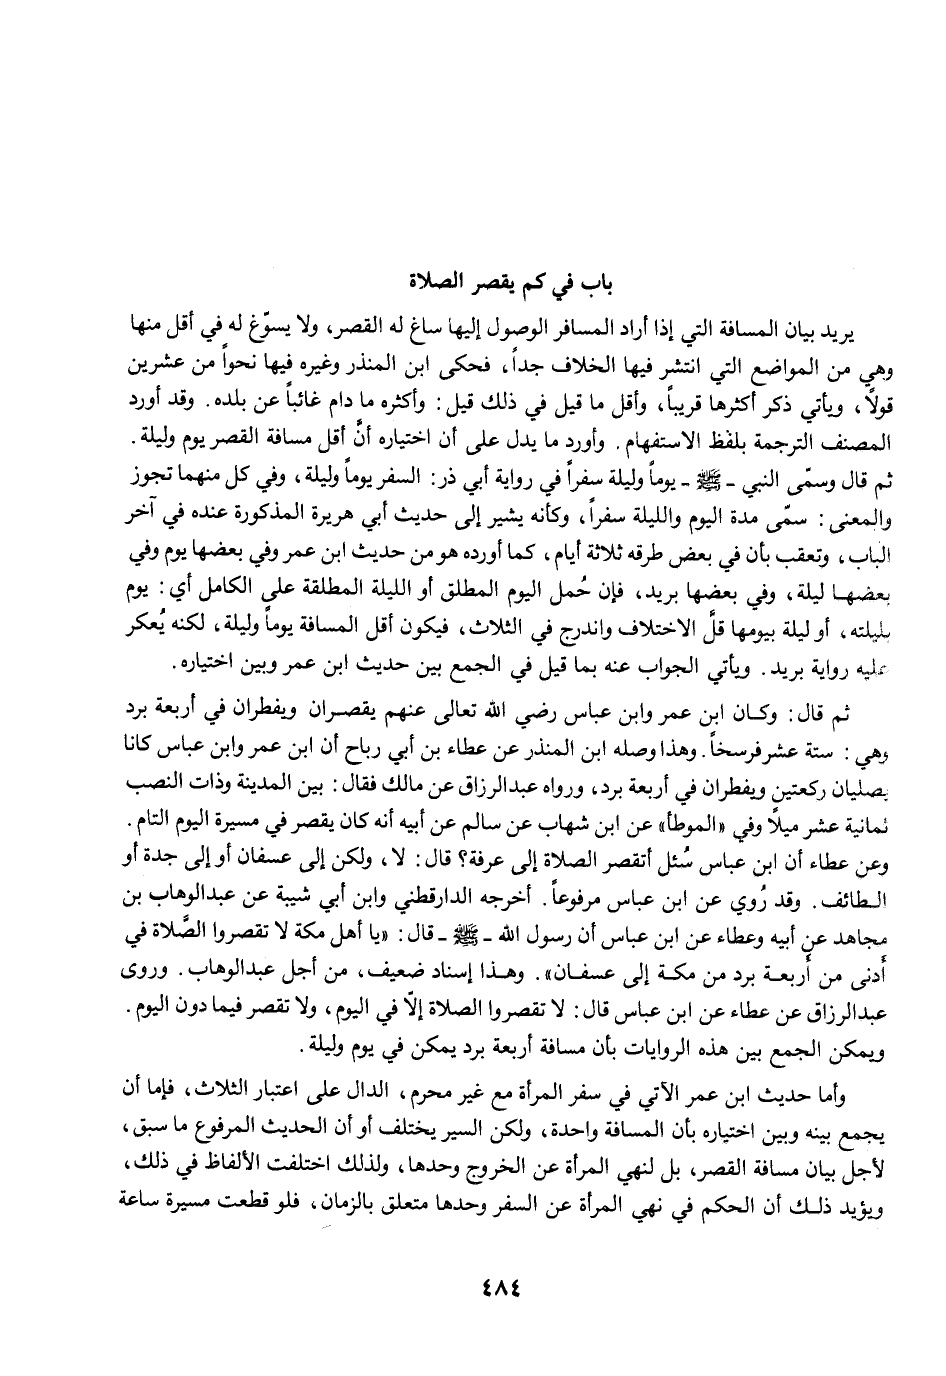 باب في كم يقصر الصلاة
يريد بيان المسافة التي إذا أراد المسافر الوصول إليها ساغ له القصر، ولا يسوّغ له في أقل منها
وهي من المواضع التي انتشر فيها الخلاف جداً، فحكى ابن المنذر وغيره فيها نحواً من عشرين
قولاً، ويأتي ذكر أكثرها قريباً، وأقل ما قيل في ذلك قيل: وأكثره ما دام غائباً عن بلده. وقد أورد
المصنف الترجمة بلفظ الاستفهام. وأورد ما يدل على أن اختياره أنَّ أقل مسافة القصر يوم وليلة.
ثم قال وسمّى النبي - ﷺ - يوماً وليلة سفراً في رواية أبي ذر: السفر يوماً وليلة، وفي كل منهما تجوز
والمعنى: سمّى مدة اليوم والليلة سفراً، وكأنه يشير إلى حديث أبي هريرة المذكورة عنده في آخر
الباب، وتعقب بأن في بعض طرقه ثلاثة أيام، كما أورده هو من حديث ابن عمر وفي بعضها يوم وفي
بعضها ليلة، وفي بعضها بريد، فإن حُمل اليوم المطلق أو الليلة المطلقة على الكامل أي: يوم
بليلته، أو ليلة بيومها قلَّ الاختلاف واندرج في الثلاث، فيكون أقل المسافة يوماً وليلة، لكنه يُعكر
عليه رواية بريد. ويأتي الجواب عنه بما قيل في الجمع بين حديث ابن عمر وبين اختياره.
ثم قال: وكان ابن عمر وابن عباس رضي الله تعالى عنهم يقصران ويفطران في أربعة برد
وهي: ستة عشر فرسخاً. وهذا وصله ابن المنذر عن عطاء بن أبي رباح أن ابن عمر وابن عباس كانا
يصليان ركعتين ويفطران في أربعة برد، ورواه عبدالرزاق عن مالك فقال: بين المدينة وذات النصب
ثمانية عشر ميلاً وفي «الموطأ» عن ابن شهاب عن سالم عن أبيه أنه كان يقصر في مسيرة اليوم التام.
وعن عطاء أن ابن عباس سُئل أتقصر الصلاة إلى عرفة؟ قال: لا، ولكن إلى عسفان أو إلى جدة أو
الطائف. وقد رُوي عن ابن عباس مرفوعاً. أخرجه الدارقطني وابن أبي شيبة عن عبدالوهاب بن
مجاهد عن أبيه وعطاء عن ابن عباس أن رسول الله - ﷺ - قال: «يا أهل مكة لا تقصروا الصَّلاة في
أدنى من أربعة برد من مكة إلى عسفان». وهذا إسناد ضعيف، من أجل عبدالوهاب. وروى
عبدالرزاق عن عطاء عن ابن عباس قال: لا تقصروا الصلاة إلّا في اليوم، ولا تقصر فيما دون اليوم.
ويمكن الجمع بين هذه الروايات بأن مسافة أربعة برد يمكن في يوم وليلة.
وأما حديث ابن عمر الآتي في سفر المرأة مع غير محرم، الدال على اعتبار الثلاث، فإما أن
يجمع بينه وبين اختياره بأن المسافة واحدة، ولكن السير يختلف أو أن الحديث المرفوع ما سبق،
لأجل بيان مسافة القصر، بل لنهي المرأة عن الخروج وحدها، ولذلك اختلفت الألفاظ في ذلك،
ويؤيد ذلك أن الحكم في نهي المرأة عن السفر وحدها متعلق بالزمان، فلو قطعت مسيرة ساعة
٤٨٤